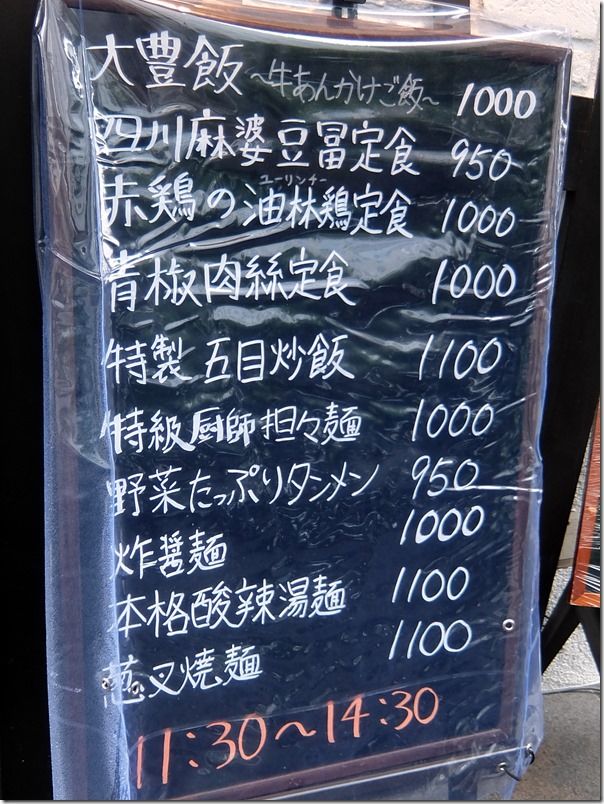 大豊飯 ～牛あんかけご飯～ 1000
四川麻婆豆冨定食 950
ユーリンチー
赤鶏の油林鶏定食 1000
青椒肉絲定食 1000
特製 五目炒飯 1100
特級厨師担々麺 1000
野菜たっぷりタンメン 950
炸醤麺 1000
本格酸辣湯麺 1100
葱叉焼麺 1100
11:30～14:30